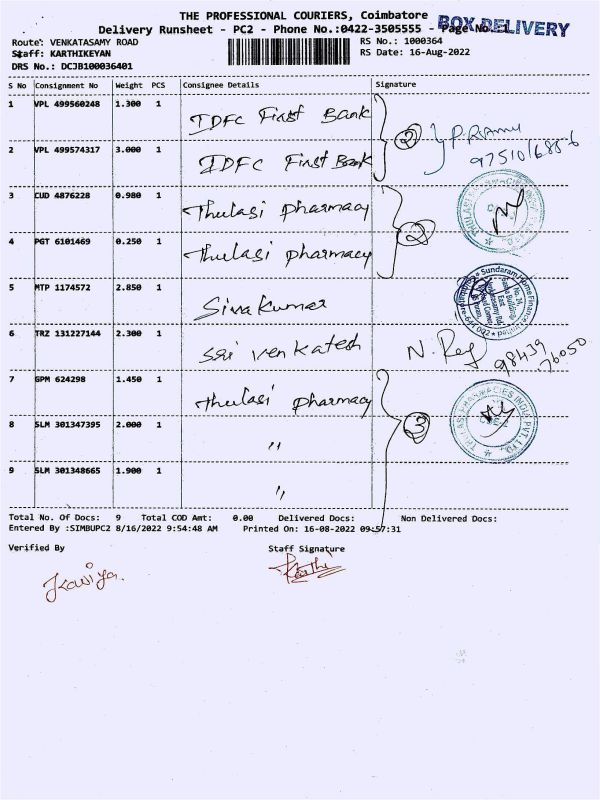 THE PROFESSIONAL COURIERS, Coimbatore
BOX DELIVERY
Delivery Runsheet - PC2 - Phone No.:0422-3505555 - Page No.:1
Route: VENKATASAMY ROAD
RS No.: 1000364
Staff: KARTHIKEYAN
RS Date: 16-Aug-2022
DRS No.: DCJB100036401
S No Consignment No Weight PCS Consignee Details Signature
1 VPL 499560248 1.300 1 IDFC First Bank
2 P. Ramu
2 VPL 499574317 3.000 1 IDFC First Bank
3 CUD 4876228 0.980 1 Thulasi pharmacy
2
4 PGT 6101469 0.250 1 Thulasi pharmacy
5 MTP 1174572 2.850 1 Siva Kumar
Sundaram Home Finance Limited
6 TRZ 131227144 2.300 1 Sri Venkatesh
98439
76050
7 GPM 624298 1.450 1 Thulasi pharmacy
THULASI PHARMACIES INDIA PVT. LTD.
8 SLM 301347395 2.000 1 "
3
9 SLM 301348665 1.900 1 "
Total No. Of Docs: 9 Total COD Amt: 0.00 Delivered Docs: Non Delivered Docs:
Entered By :SIMBUPC2 8/16/2022 9:54:48 AM Printed On: 16-08-2022 09:57:31
Verified By Staff Signature
Kaviya. Karthi